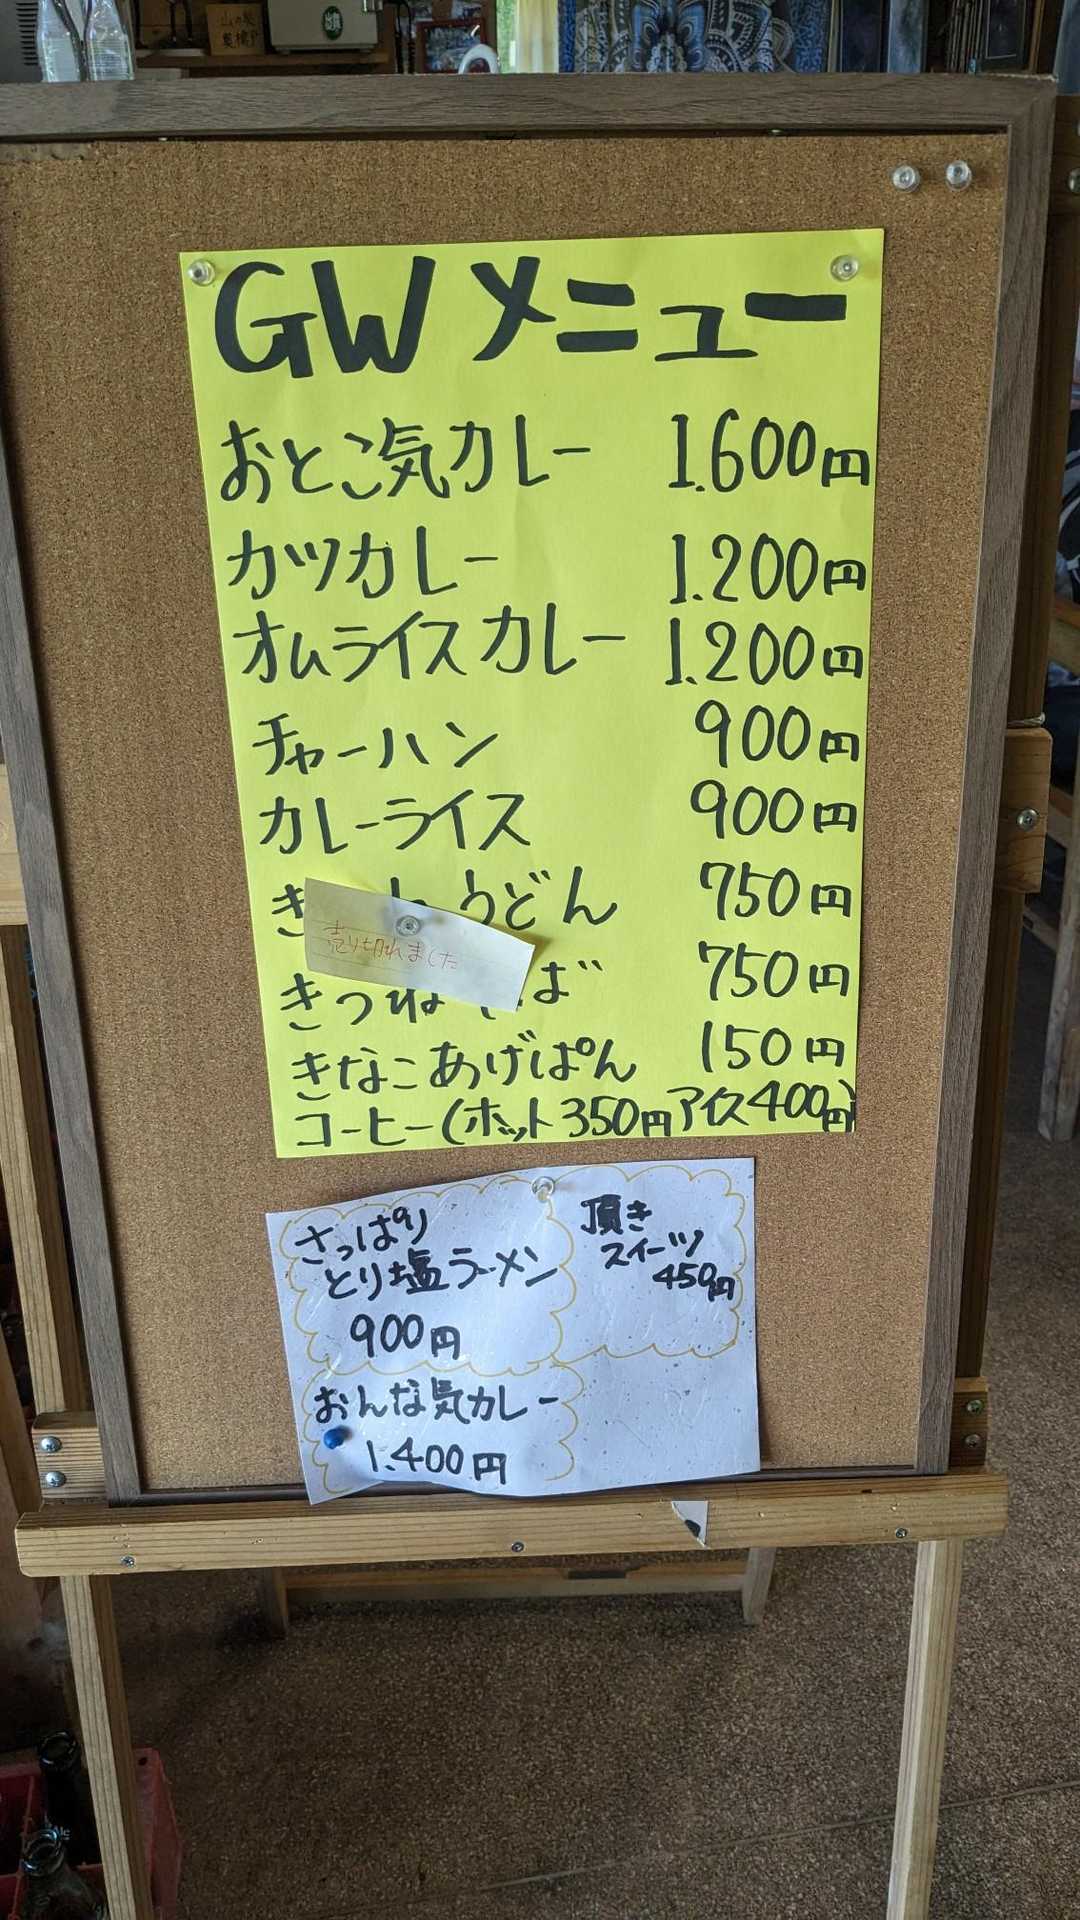 GWメニュー
おとこ気カレー 1.600円
カツカレー 1.200円
オムライスカレー 1.200円
チャーハン 900円
カレーライス 900円
き うどん 750円
売り切れました
きつね ば 750円
きなこあげぱん 150円
コーヒー(ホット350円アイス400円)
さっぱり
とり塩ラーメン
900円
頂き
スイーツ
450円
おんな気カレー
1.400円